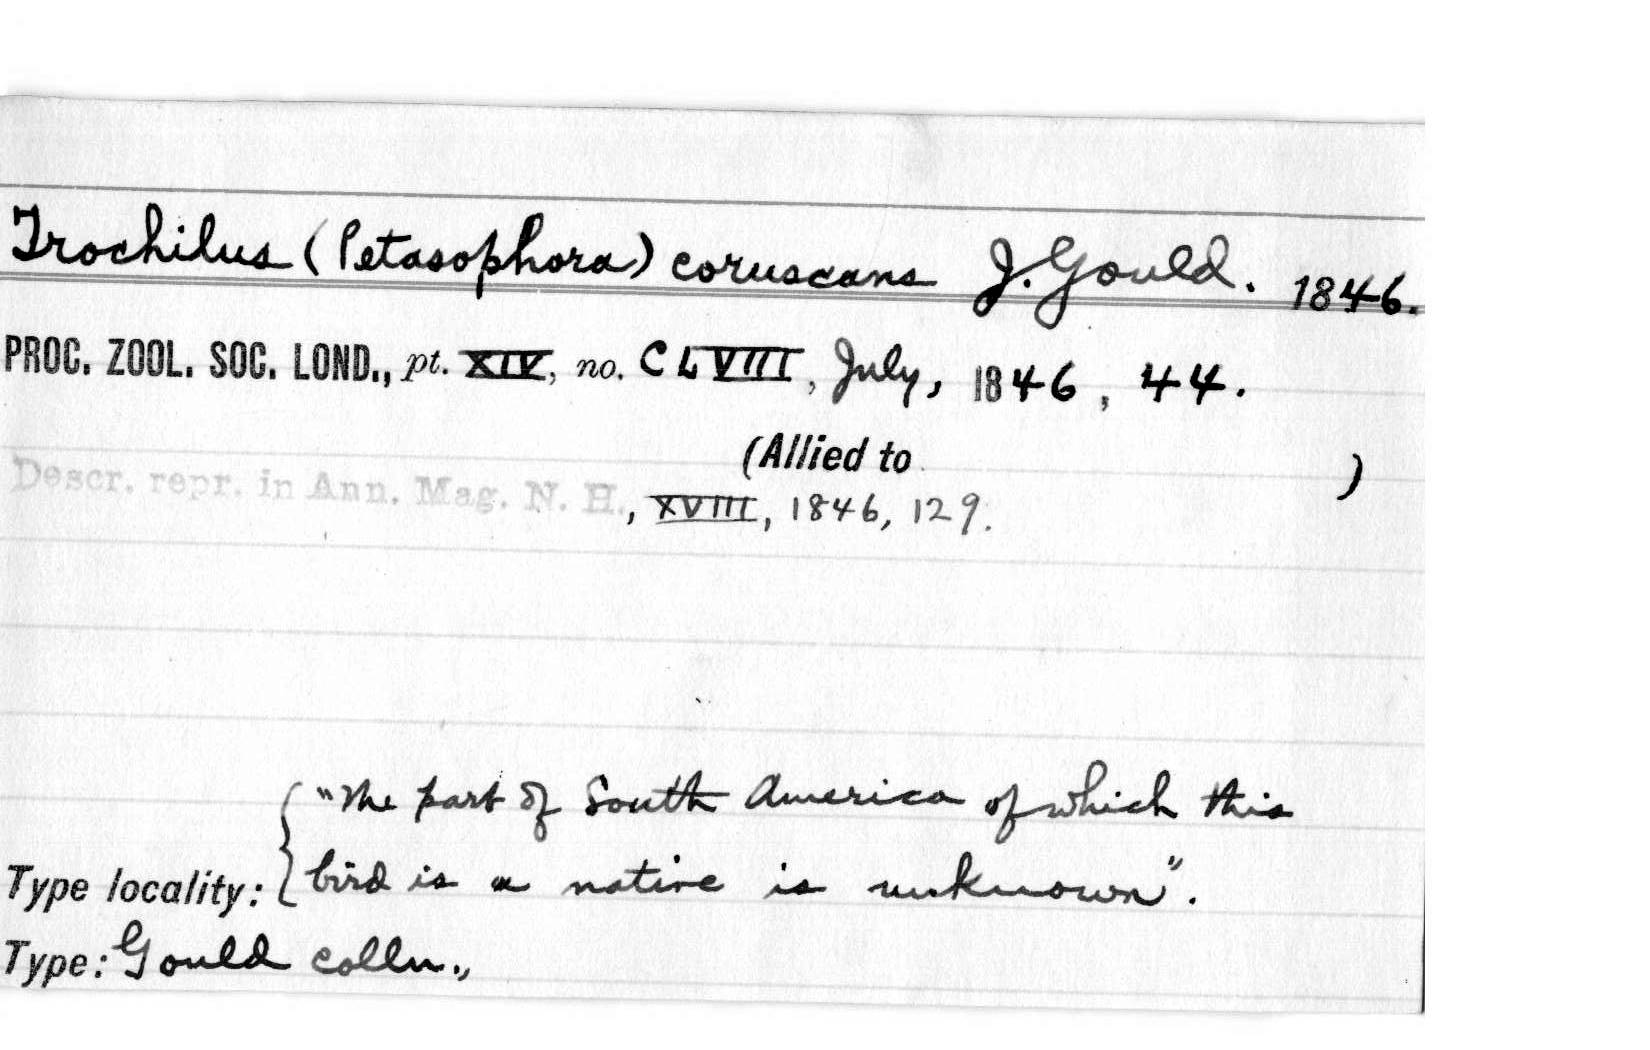 Trochilus (Petasophora) coruscans J. Gould. 1846.
PROC. ZOOL. SOC. LOND., pt. XIV, no. CLVIII, July, 1846, 44.
(Allied to )
Descr. repr. in Ann. Mag. N. H., XVIII, 1846, 129.
"The part of South America of which this
Type locality: bird is a native is unknown".
Type: Gould colln.,